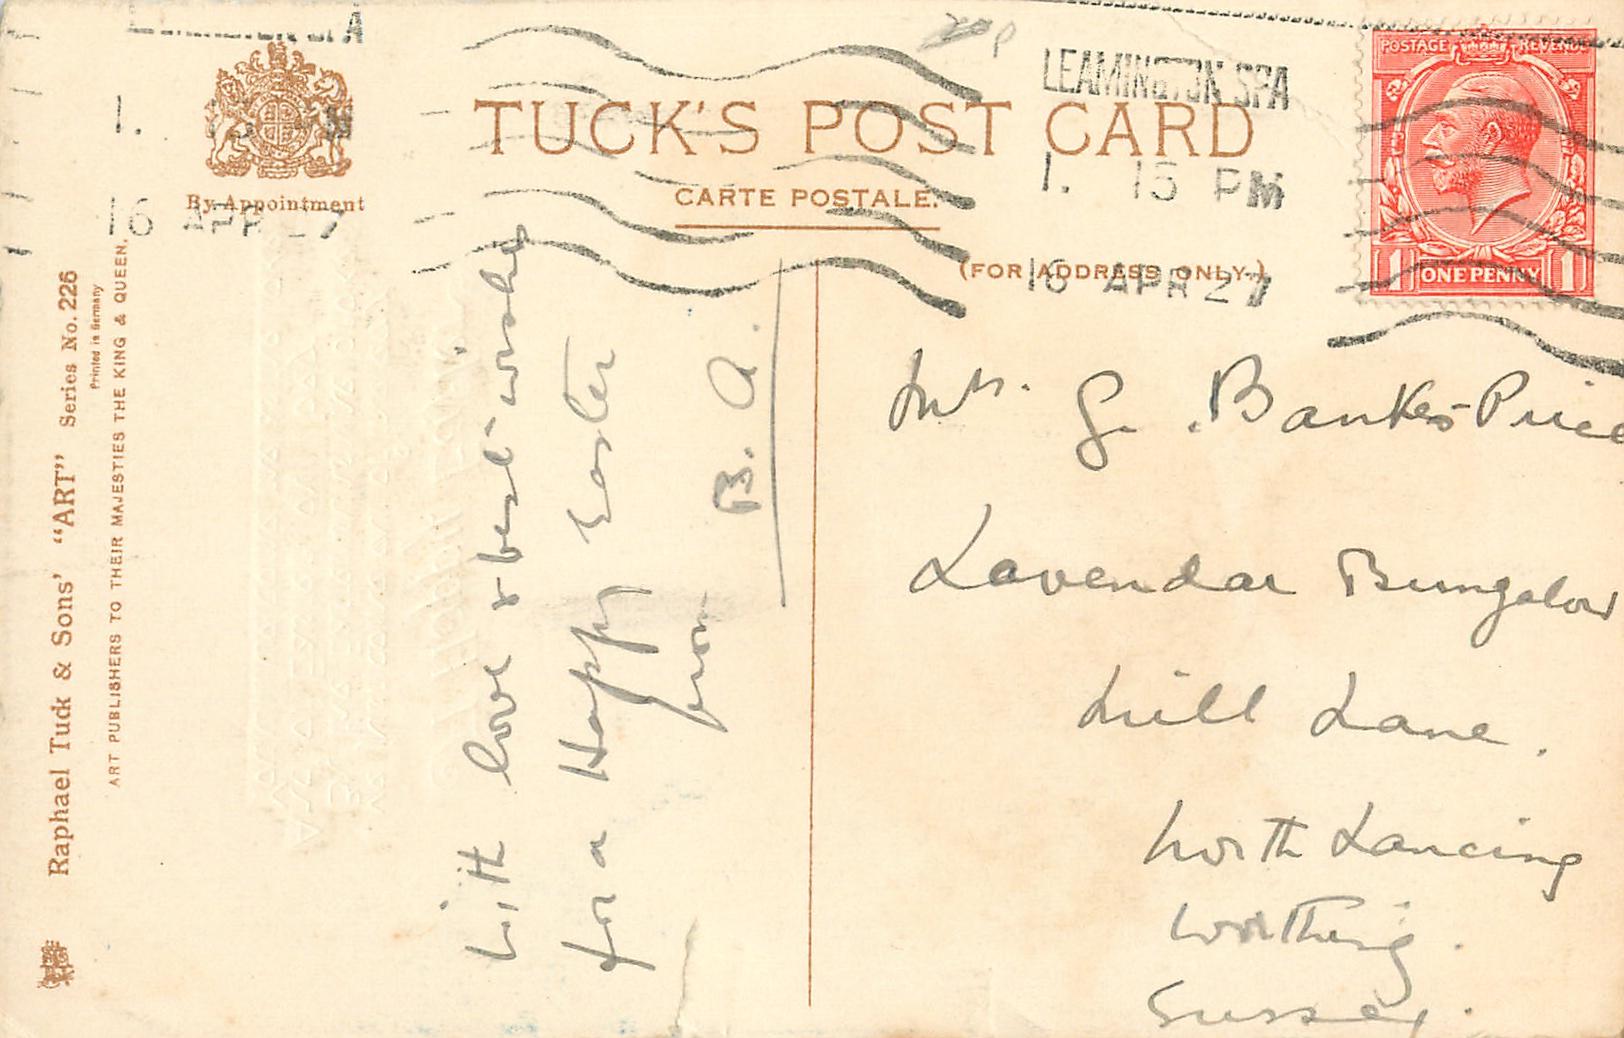 TUCK'S POST CARD
CARTE POSTALE.
(FOR ADDRESS ONLY.)
By Appointment
LEAMINGTON SPA
1. 15 PM
16 APR 27
LEAMINGTON SPA
1. 15 PM
16 APR 27
POSTAGE REVENUE
1 ONE PENNY 1
Raphael Tuck & Sons' "ART" Series No. 226
Printed in Germany
ART PUBLISHERS TO THEIR MAJESTIES THE KING & QUEEN.
With love & best wishes
for a Happy Easter
from B. A.
Mrs. G. Bankes-Price
Lavendar Bungalow
Mill Lane.
North Lancing
Worthing.
Sussex.